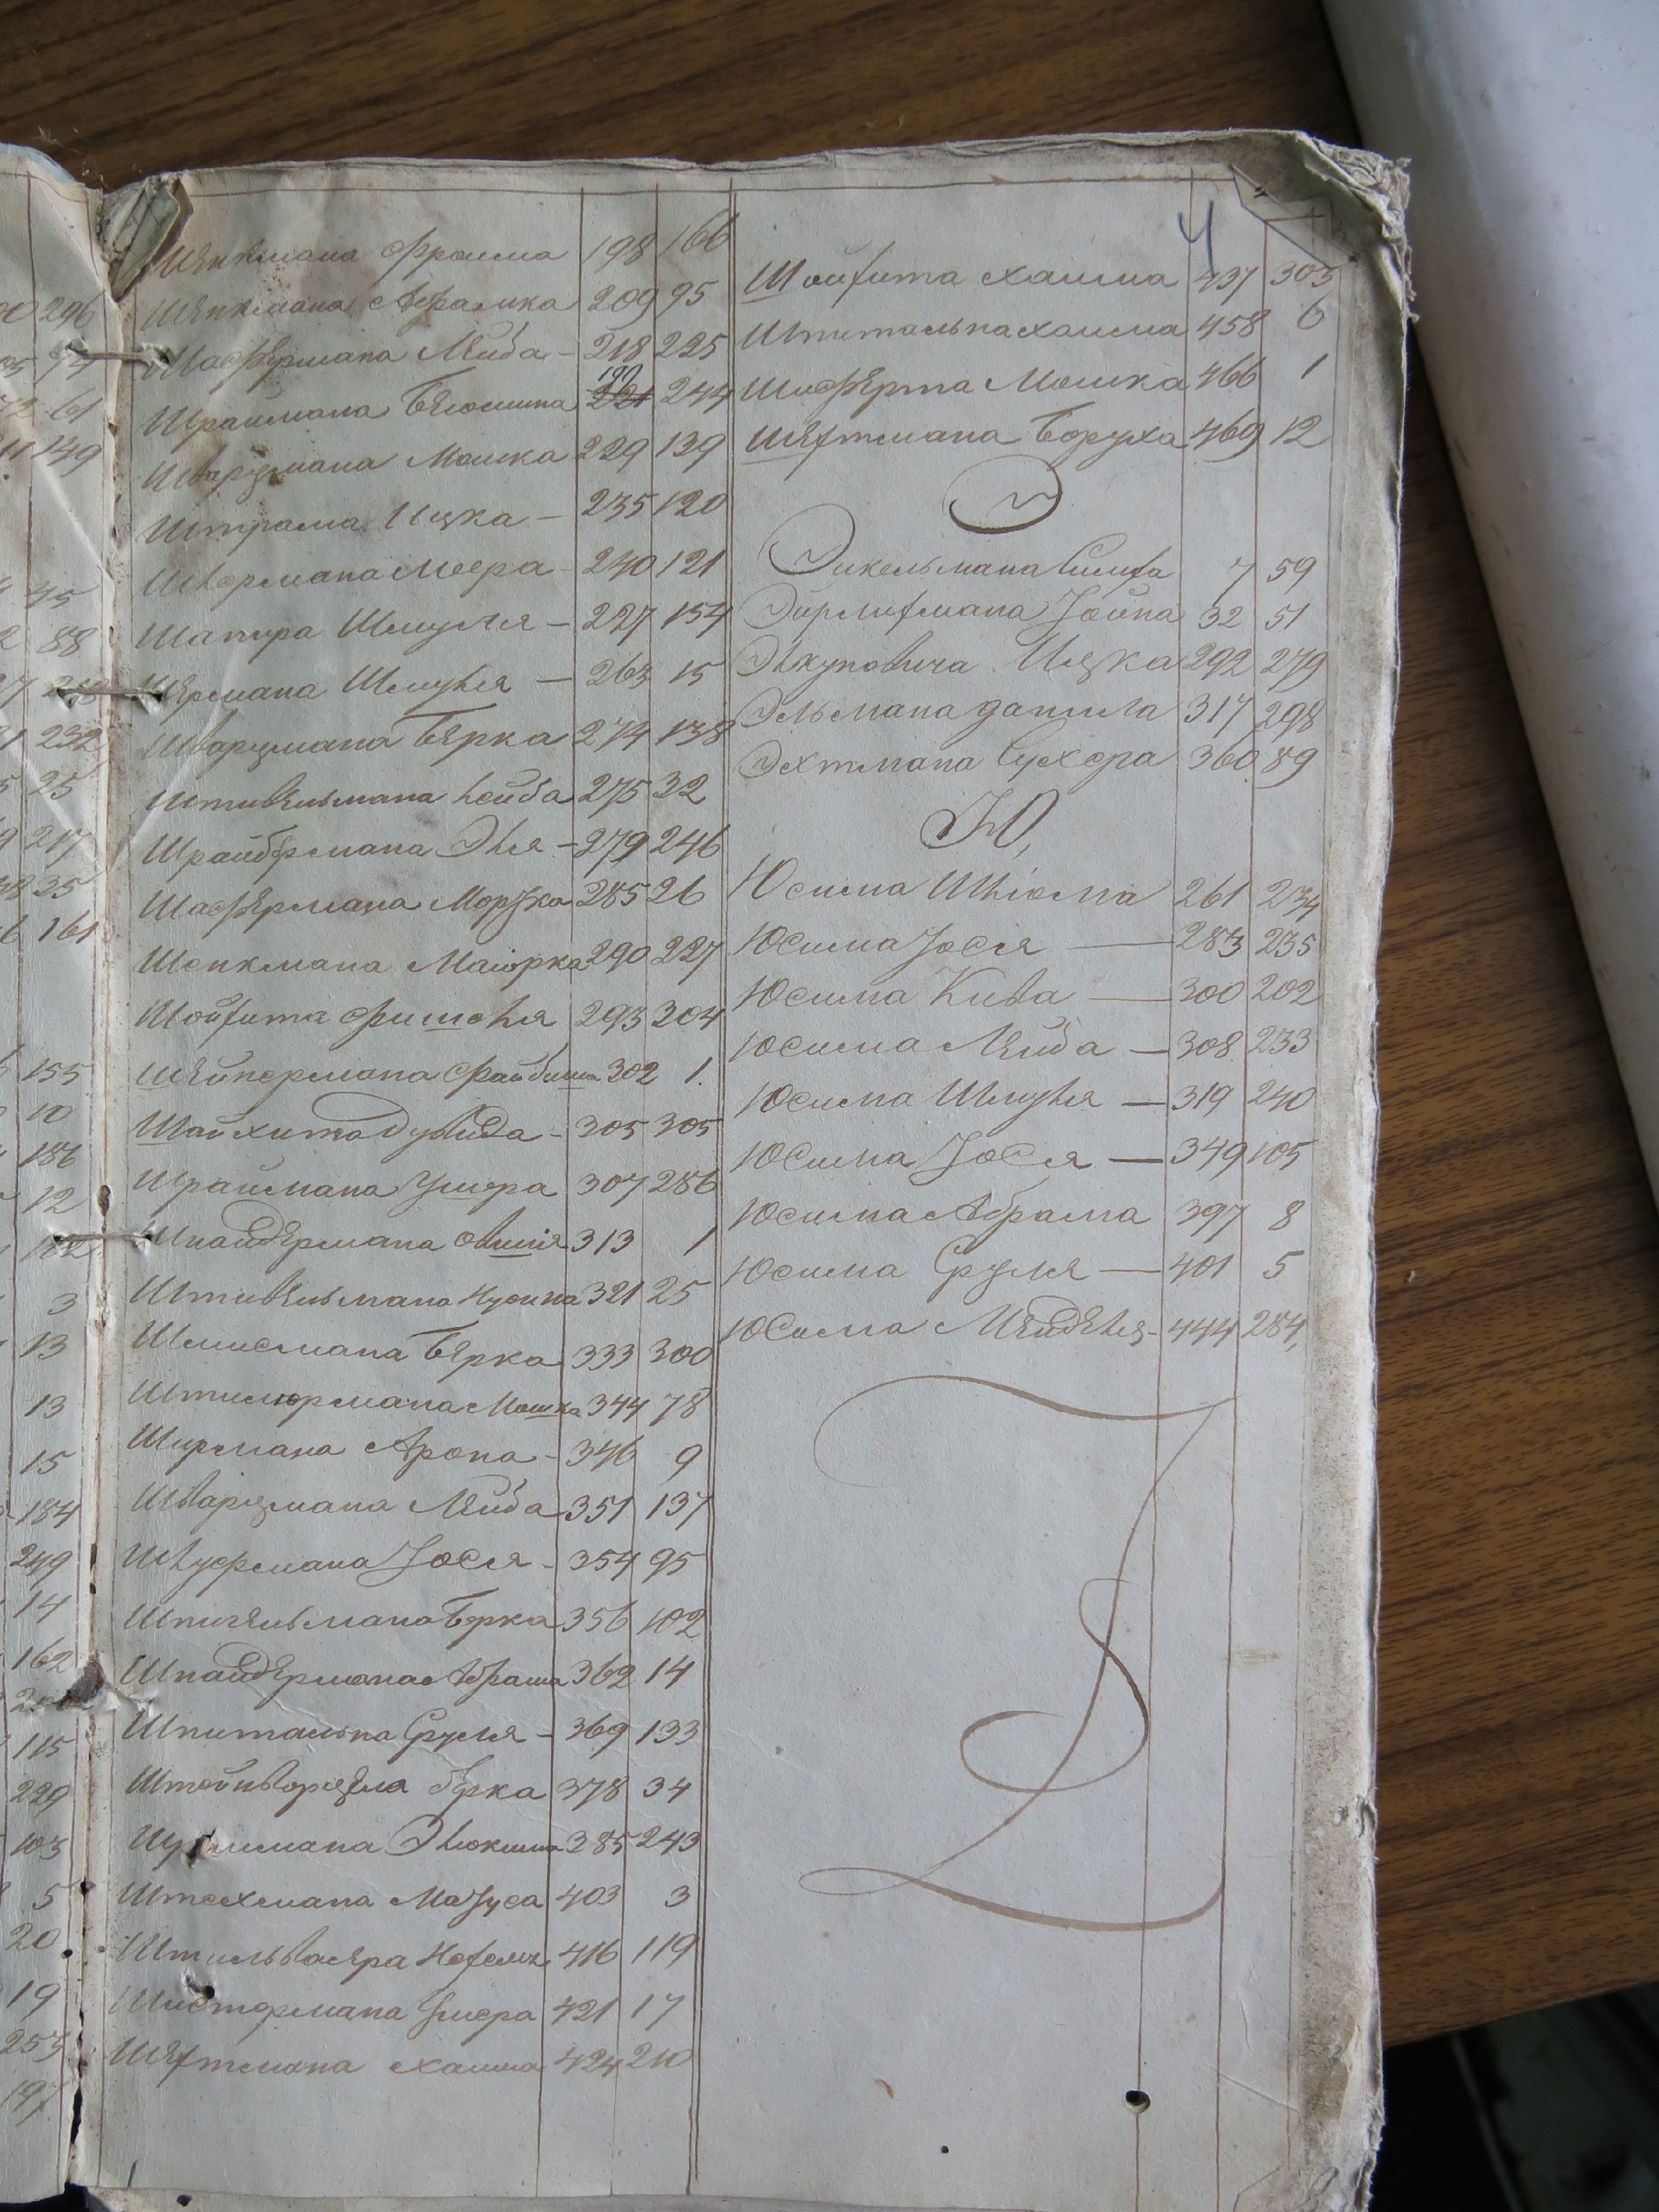 296
94
61
149
45
88
232
25
217
25
161
155
10
186
12
182
3
13
13
15
184
249
14
162
115
229
103
5
20
19
253
197
Шенкмана Фроима 198 166
Шенкмана Абрамка 209 95
Шафермана Лейба - 218 225
Шраймана Бенюмина 190 244
Шварцмана Мошка 229 139
Штрама Ицка - 235 120
Шермана Меера - 240 121
Шапира Шмуля - 227 154
Шермана Шмуля - 263 15
Шварцмана Берка 274 138
Штивельмана Лейба 275 32
Шрайбермана Эля - 279 246
Шафермана Мордка 285 26
Шенкмана Маіорка 290 227
Шойхита Фишеля 293 204
Шейнермана Файбиша 302 1.
Шайхита Дувида - 305 305
Шраймана Ушера 307 286
Шнайдермана Овшія 313 1
Штивельмана Нусина 321 25
Шлисмана Берка 333 300
Штилермана Мошка 344 78
Ширмана Арона - 346 9
Шварцмана Лейба 351 137
Шлуфмана Іося - 354 95
Шпигельмана Берка 356 102
Шнайдермана Абрама 362 14
Шпитальна Сруля - 369 133
Штейнварцеля Берка 378 34
Эльокима 385 243
Штехмана Мануса 403 3
Штильвасера 416 119
Шистермана Ушера 421 17
Шехтмана Хаима 424 210
4
Шойхита Хаима 437 303
Шпитальна Хаима 458 6
Шиферта Мошка 466 1
Шехтмана Боруха 469 12
Э
Энкельмана 7 59
Эйрлихмана Іойна 32 51
Элкуновича Ицка 292 279
Эльмана Данила 317 298
Эхтмана Сухера 360 89
Ю,
Юсима Шліома 261 234
Юсима Іося — 283 235
Юсима Кива — 300 202
Юсима Лейба — 308 233
Юсима Шмуля — 319 240
Юсима Іося — 349 105
Юсима Абрама 397 8
Юсима Сруля — 401 5
Юсима Менделя - 444 284,